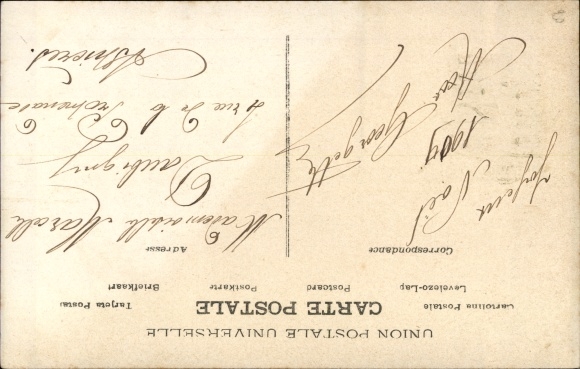 UNION POSTALE UNIVERSELLE
CARTE POSTALE
Cartolina Postale
Levelezo-Lap
Postcard
Postkarte
Briefkaart
Tarjeta Postal
Correspondance
Adresse
Joyeux
Noël
1909
Georgette
Mademoiselle Marcelle
Daubigny
4 rue de la
Asnières.